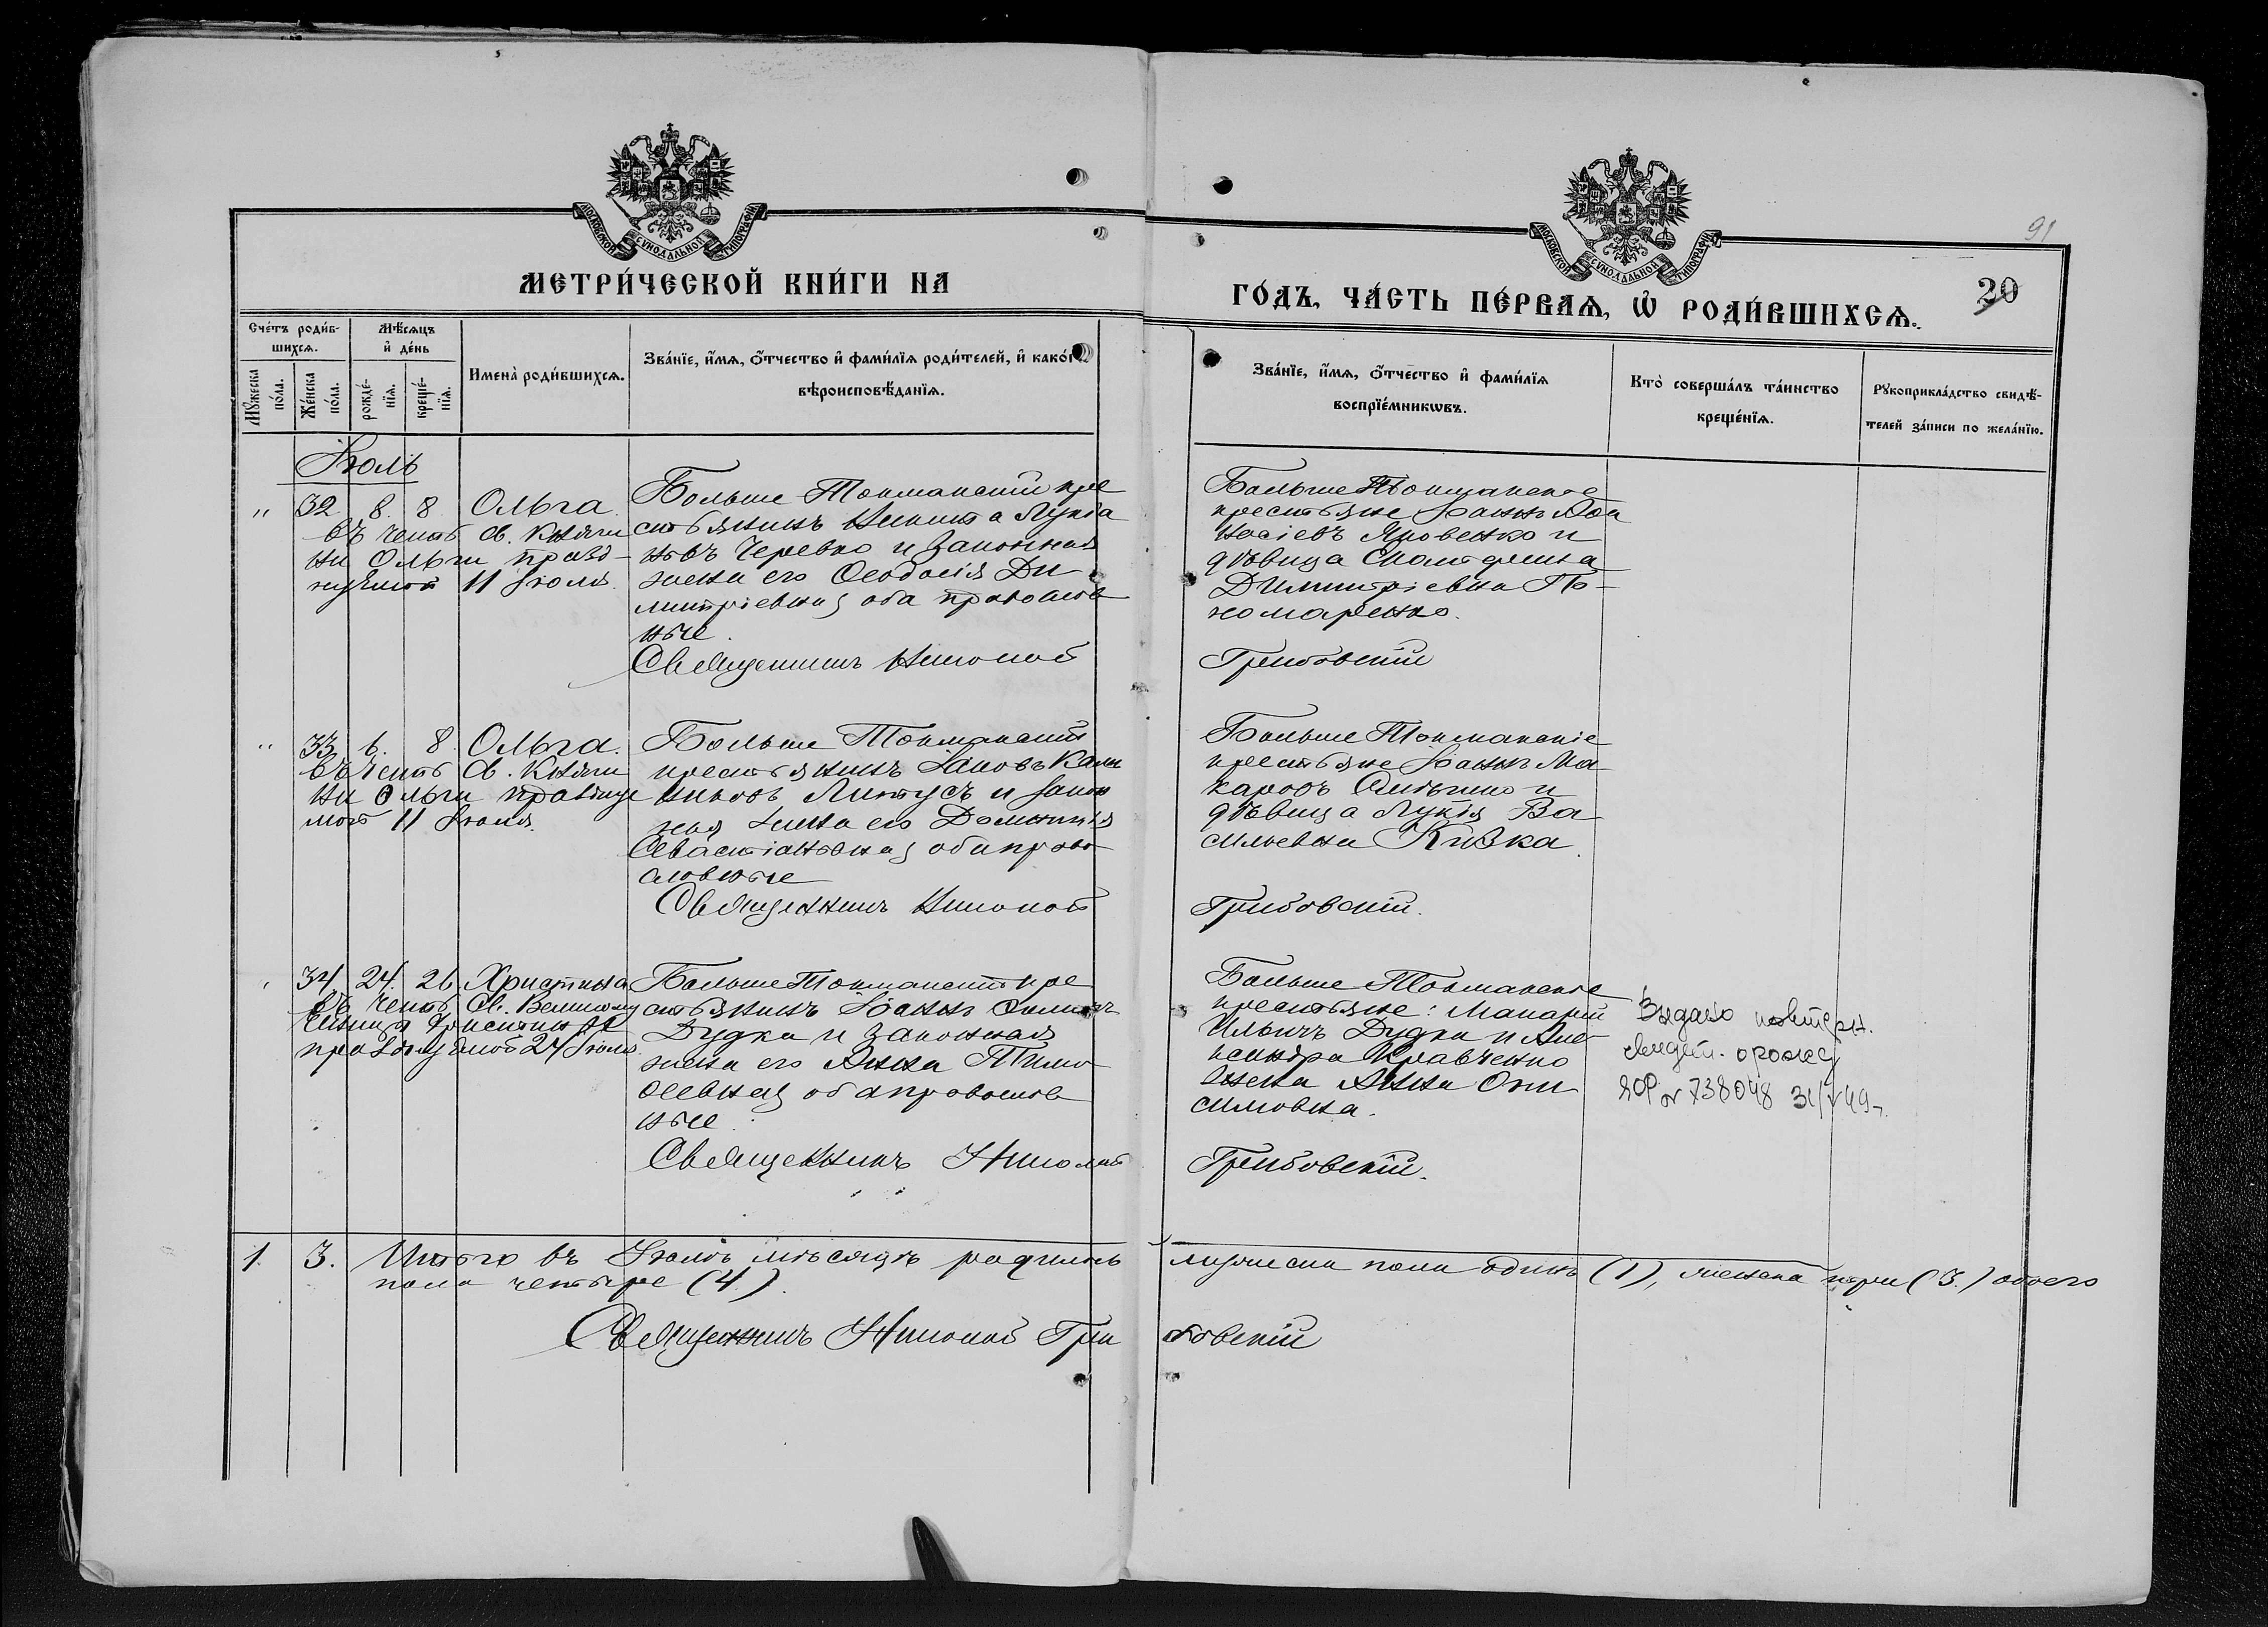 МОСКОВСКОЙ СѴНОДАЛЬНОЙ ТИПОГРАФІИ
МЕТРИ́ЧЕСКОЙ КНИ́ГИ НА
Сче́тъ роди́в-
шихсѧ.
Мѣ́сѧцъ
и҆ де́нь
Мꙋ́жеска
по́ла.
Же́нска
по́ла.
рожде́-
нїѧ.
креще́-
нїѧ.
Имена̀ роди́вшихсѧ.
Зва́нїе, и҆́мѧ, ѻ҆́тчество и҆ фами́лїѧ роди́телей, и҆ како́гѡ
вѣроисповѣ́данїѧ.
Іюль
" 32 8. 8 Ольга
въ честь св. Княги
ни Ольги празд-
нуемой 11 Іюля.
Больше Токмакскій кре
стьянинъ Никита Лукіа
новъ Черевко и законная
жена его Ѳеодосія Ди
митріевна, оба православ
ные.
Священникъ Николай
" 33 6. 8 Ольга.
въ честь св. Княги
ни Ольги празднуе
мой 11 Іюля.
Больше Токмакскій
крестьянинъ Іаковъ
Литусъ и закон
ная жена его Домникія
Севастіановна, оба право
славные
Священникъ Николай
34. 24. 26 Христина
въ честь Св. Великому
ченицы Христины
празднуемой 24 Іюля.
Больше Токмакскій кре
стьянинъ Іоаннъ
Дудка и законная
жена его Анна Тимо
ѳеевна, оба православ
ные.
Священникъ Николай
1. 3. Итого въ Іюлѣ мѣсяцѣ родилось
пола четыре (4).
Священникъ Николай Гри
МОСКОВСКОЙ СѴНОДАЛЬНОЙ ТИПОГРАФІИ
91
20
ГО́ДЪ, ЧА́СТЬ ПЕ́РВАѦ, Ѽ РОДИ́ВШИХСѦ.
Зва́нїе, и҆́мѧ, ѻ҆́тчество и҆ фами́лїѧ
воспрїе́мникѡвъ.
Кто̀ соверша́лъ та́инство
креще́нїѧ.
Рꙋкоприкла́дство свидѣ́-
телей за́писи по жела́нїю.
Больше Токмакскіе
крестьяне Іоаннъ Аѳа
насіевъ Яковенко и
дѣвица
Димитріевна По-
номаренко.
Грибовскій
Больше Токмакскіе
крестьяне Іоаннъ Ма
каровъ и
дѣвица Лукія Ва
сильевна Кивка.
Грибовскій.
Больше Токмакскіе
крестьяне: Макарій
Ильичъ Дудка и Але
ксандра Кравченко
жена Анна Они
симовна.
Грибовскій.
Видано повторн.
свидет. о рожд
ЯР № 738048 31/V 49
мужеска пола одинъ (1), женска три (3.) обоего
бовскій